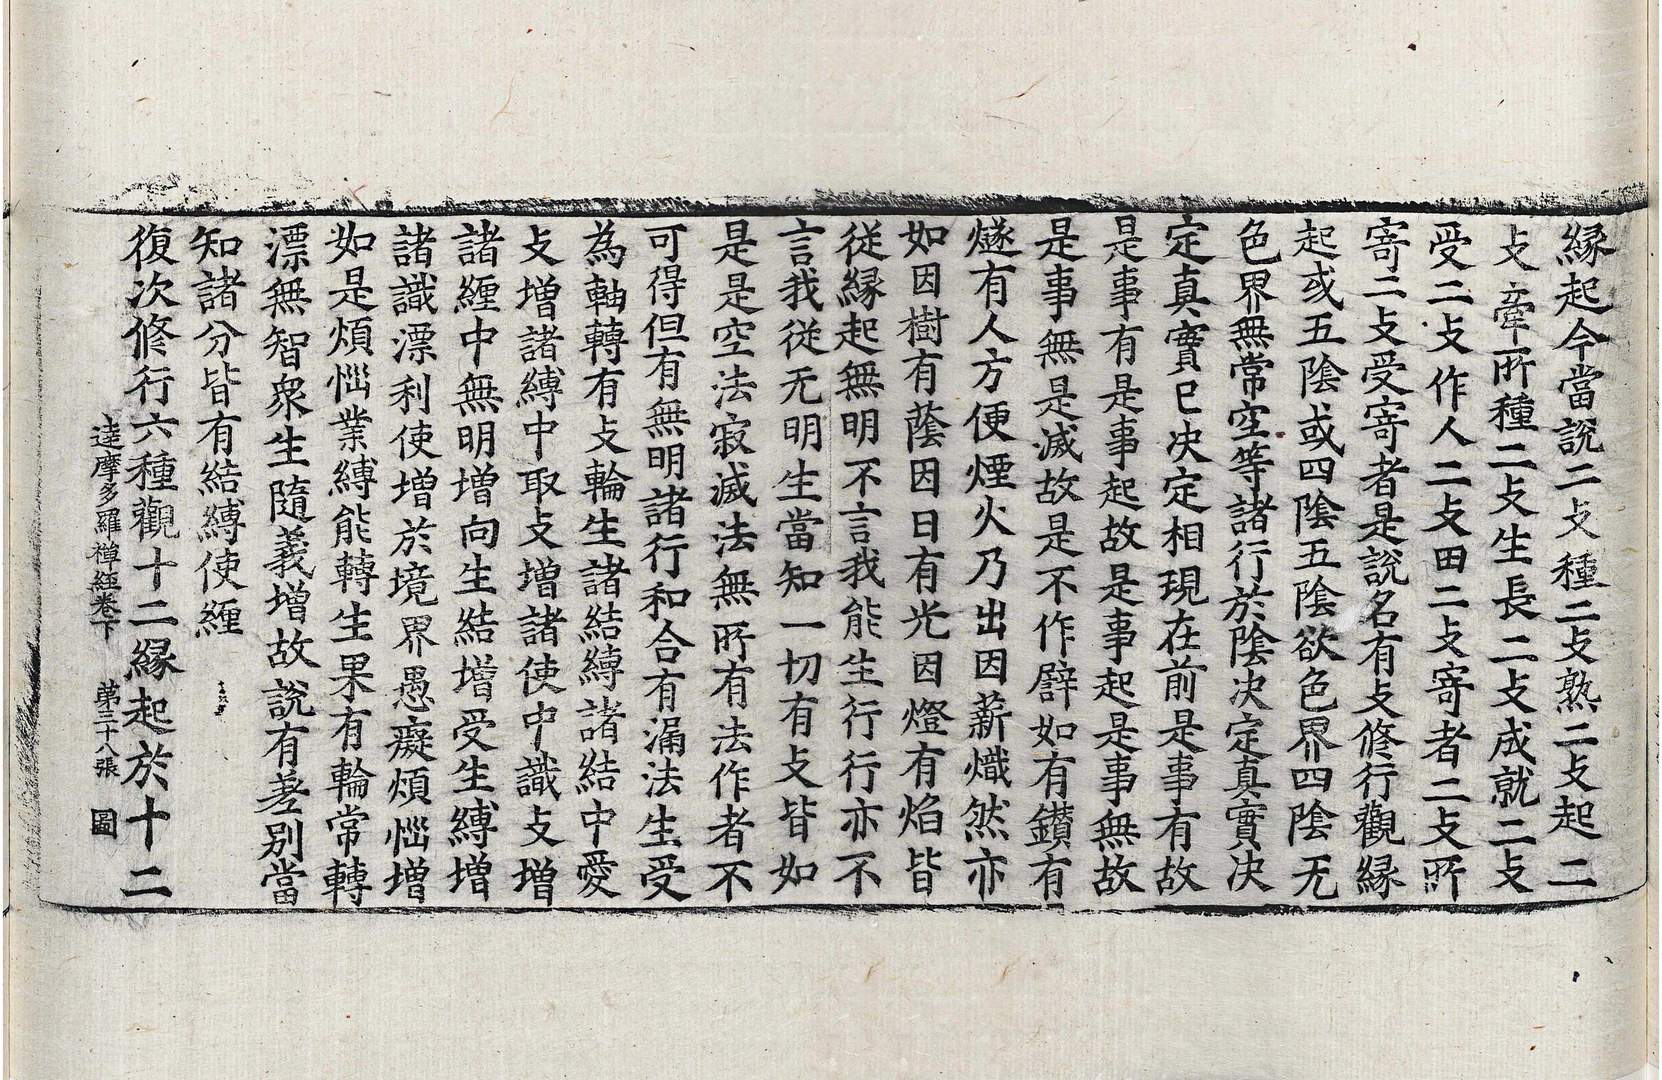 縁起今當説二支種二支熟二支起二
支牽所種二支生長二支成就二支
受二支作人二支田二支寄者二支所
寄二支受寄者是説名有支修行觀縁
起或五陰或四陰五陰欲色界四陰无
色界無常空等諸行於陰决定真實决
定真實已决定相現在前是事有故
是事有是事起故是事起是事無故
是事無是滅故是不作譬如有鑚有
燧有人方便煙火乃出因薪熾然亦
如因樹有蔭因日有光因燈有焰皆
従縁起無明不言我能生行行亦不
言我従无明生當知一切有支皆如
是是空法寂滅法無所有法作者不
可得但有無明諸行和合有漏法生受
為軸轉有支輪生諸結縛諸結中愛
支增諸縛中取支增諸使中識支增
諸纏中無明增向生結增受生縛增
諸識漂利使增於境界愚癡煩惱增
如是煩惱業縛能轉生果有輪常轉
漂無智衆生隨義增故説有差别當
知諸分皆有結縛使纏
復次修行六種觀十二縁起於十二
達摩多羅禪經卷下 第三十八張 圖